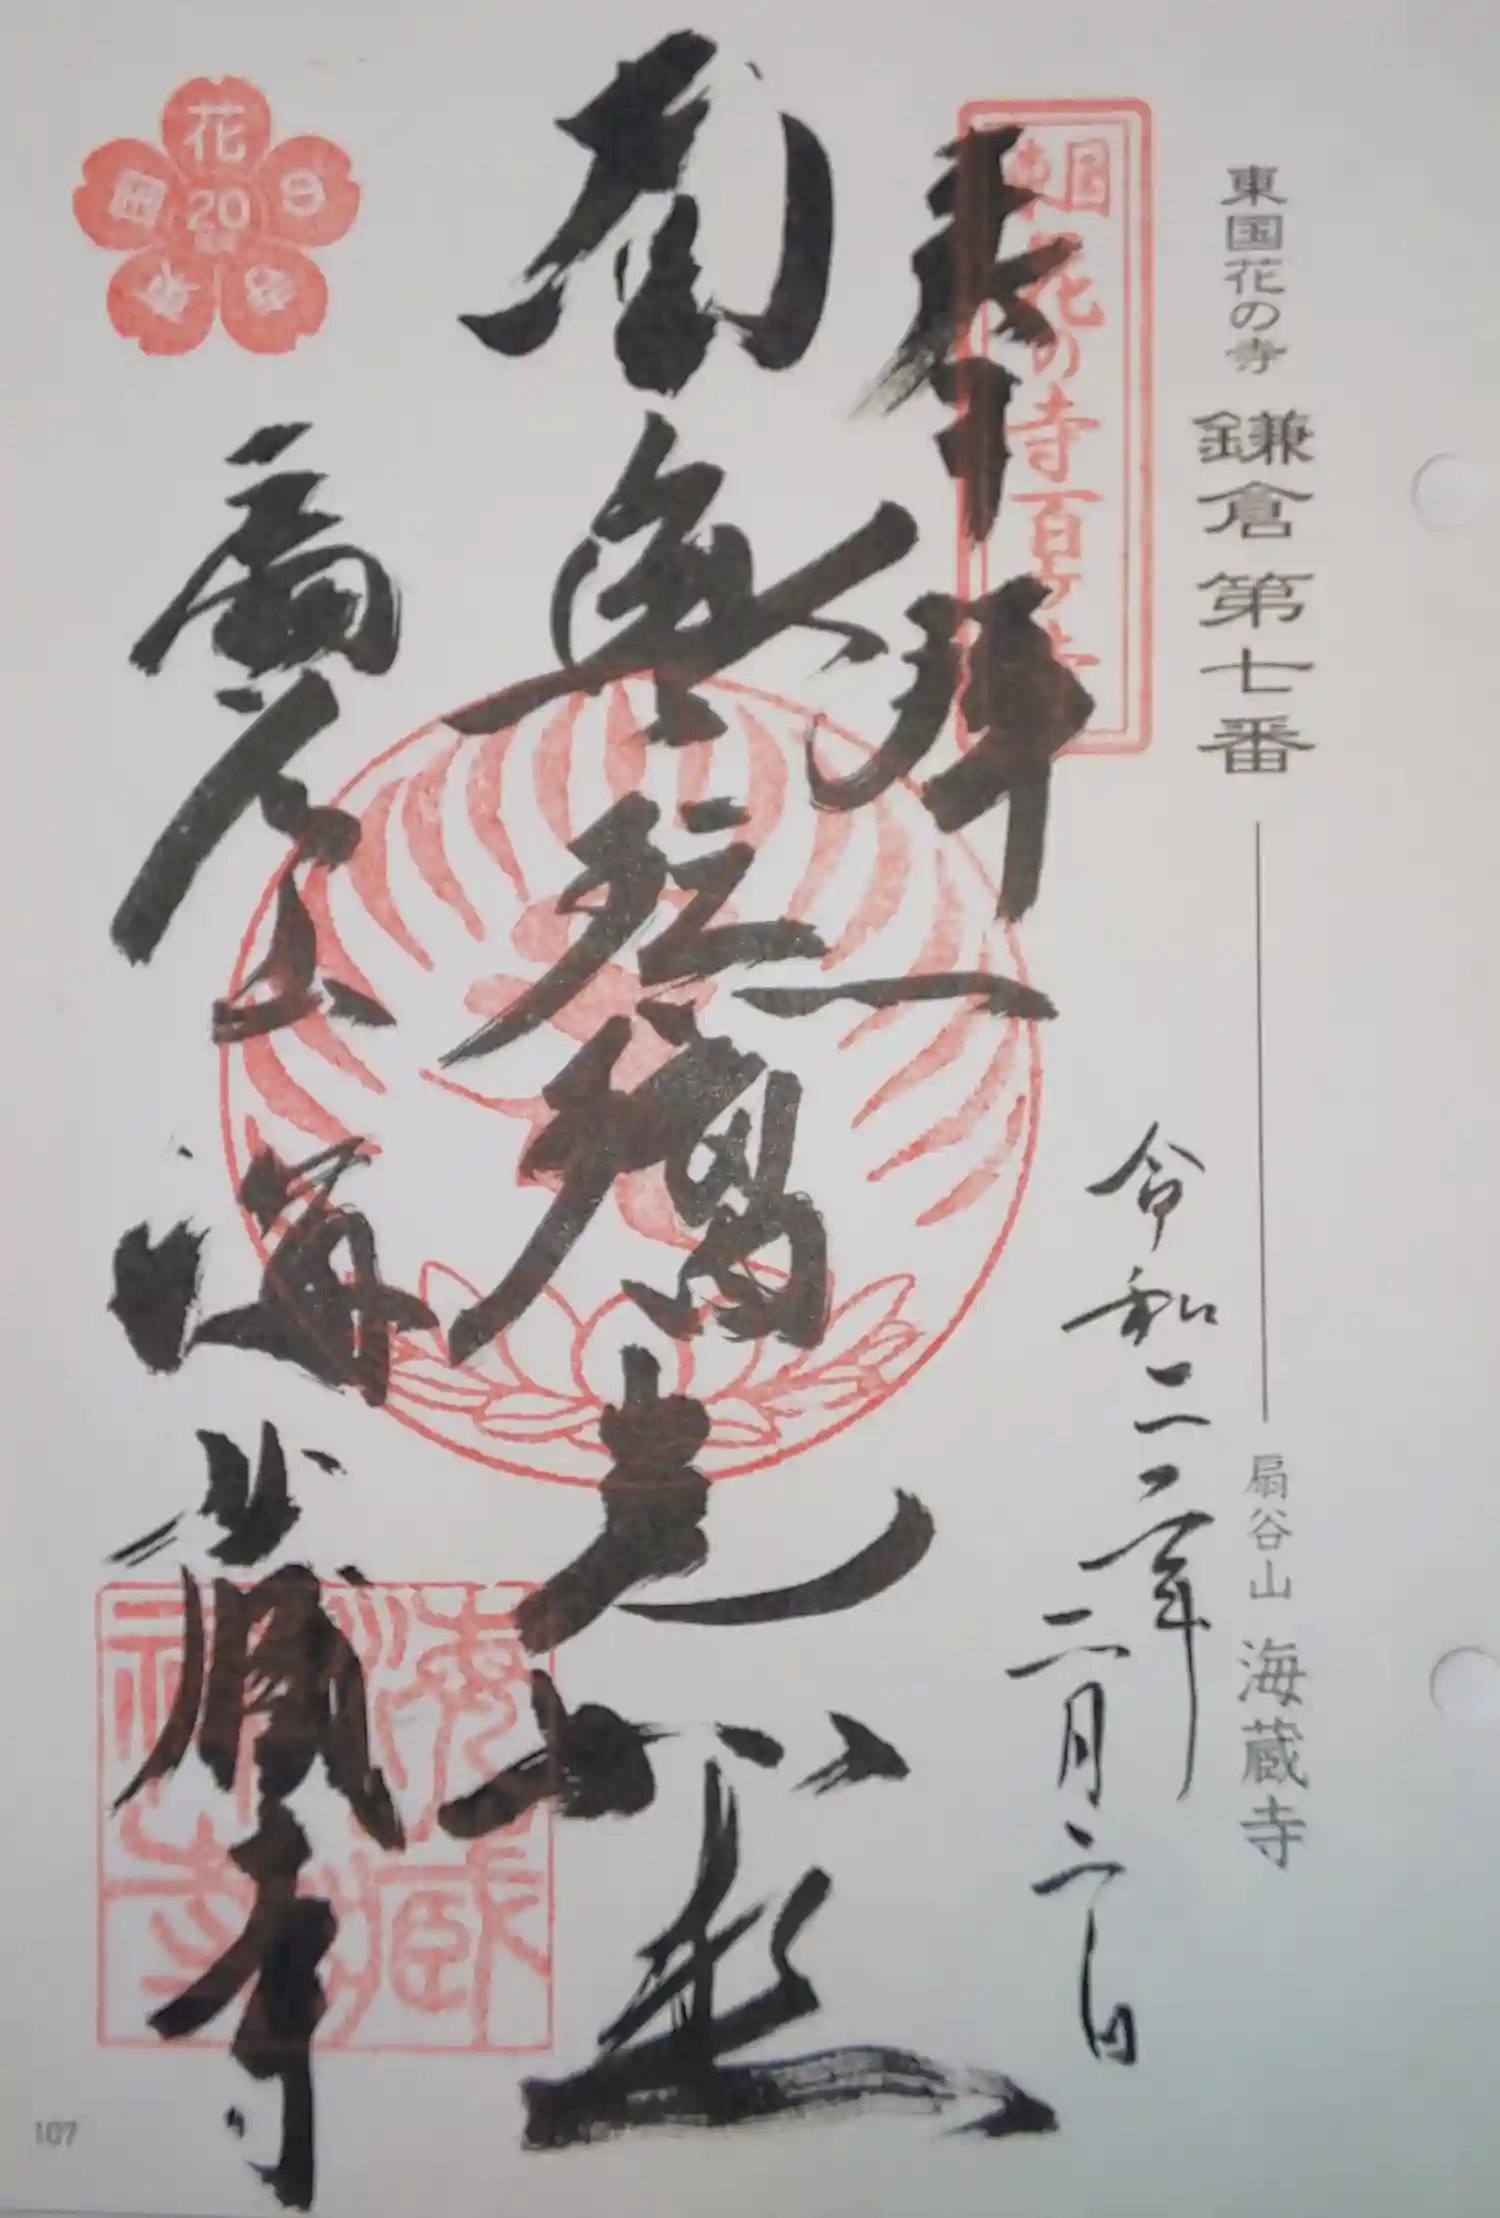 東国花の寺 鎌倉第七番
扇谷山 海蔵寺
東国花の寺百ヶ寺
奉拝
令和三年二月二日
南無瑠璃光如来
扇谷山
海蔵寺
花
20
107